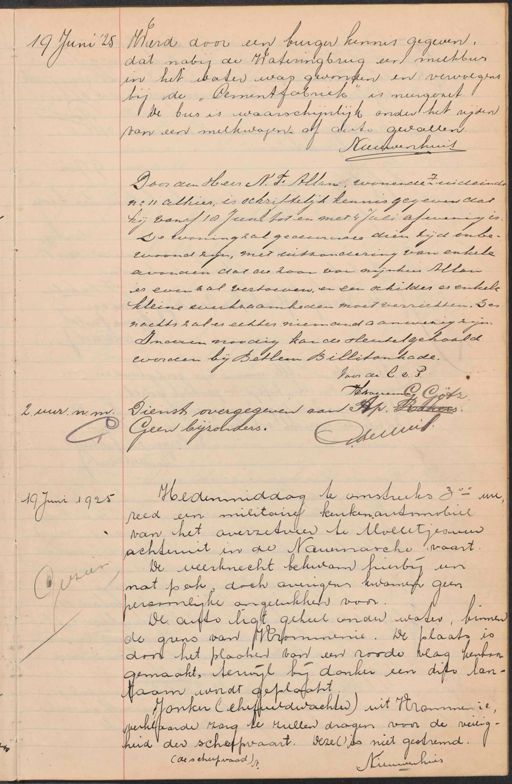 19 Juni '25 Werd door een burger kennis gegeven,
dat nabij de Wateringbrug een melkbus
in het water was gevonden en vervoegens
bij de "Cementfabriek" is neergezet
De bus is waarschijnlijk onder het rijden
van een melkwagen of auto gevallen
Nieuwenhuis
Door den Heer N. F. Allan, wonende Zuideinde
no 11 alhier, is schriftelijk kennis gegeven dat
hij vanaf 18 Juni tot en met 4 Juli afwezig is.
De woning zal gedurende dien tijd onbe-
woond zijn, met uitzondering van enkele
avonden dat de zoon van mijnheer Allan
er even zal vertoeven, en een schilder er enkele
kleine werkzaamheden moet verrichten. Des
nachts zal er echter niemand aanwezig zijn.
Indien noodig kan de sleutel gehaald
worden bij Betlem Billitonkade.
Voor de C. v. P.
G. Götz
2 uur. n.m. Dienst overgegeven aan Ap.
Geen bijzonders.
19 Juni 1925 Hedenmiddag te omstreeks 3 uur
reed een militaire keukenautomobiel
van het overzetveer te
achteruit in de Nauernasche vaart.
De veerknecht bekwam hierbij een
nat pak doch overigens kwamen geen
persoonlijke ongelukken voor.
De auto ligt geheel onder water, binnen
de grens van Krommenie. De plaats is
door het plaatsen van een roode vlag kenbaar
gemaakt, terwijl bij donker een dito lan-
taarn wordt geplaatst
Jonker (chefveldwachter) uit Krommenie,
verklaarde zorg te zullen dragen voor de veilig-
heid der scheepvaart. Deze(!) is niet gestremd.
(de scheepvaart)
Nieuwenhuis
Gezien